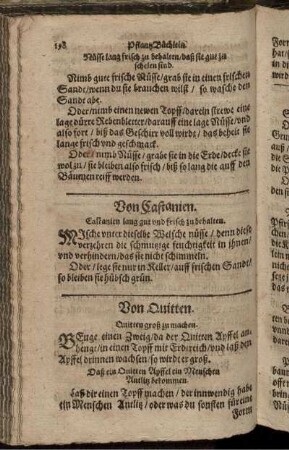 198 Pflantz Büchlein.
Nüsse lang frisch zu behalten / daß sie gut zu
schelen sind.
Nimb gute frische Nüsse / grab sie in einen frischen
Sande / wenn du sie brauchen wilst / so wasche den
Sandt abe.
Oder / nimb einen newen Topff / darein strewe eine
lage dürre Rebenbletter / darauff eine lage Nüsse / und
also fort / biß das Geschirr voll wirdt / das beheit sie
lange frisch und geschmack.
Oder / nimb Nüsse / grabe sie in die Erde / decke sie
wol zu / sie bleiben also frisch / biß so lang die auff den
Bäumen reiff werden.
Von Castanien.
Castanien lang gut und frisch zu behalten.
MIsche unter dieselbe Welsche nüsse / denn diese
verzehren die schmutzige feuchtigkeit in ihnen /
und verhindern / das sie nicht schimmeln.
Oder / lege sie nur in Keller / auff frischen Sandt /
so bleiben sie hübsch grün.
Von Quitten.
Quitten groß zu machen.
BEuge einen Zweig / da der Quitten Apffel an-
henge / in einen Topff mit Erdreich / und laß den
Apffel drinnen wachsen so wirdt er groß.
Daß ein Quitten Apffel ein Menschen
Antlitz bekommen.
Laß dir einen Topff machen / der innwendig habe
ein Menschen Antlitz / oder was du sonsten für eine
Form